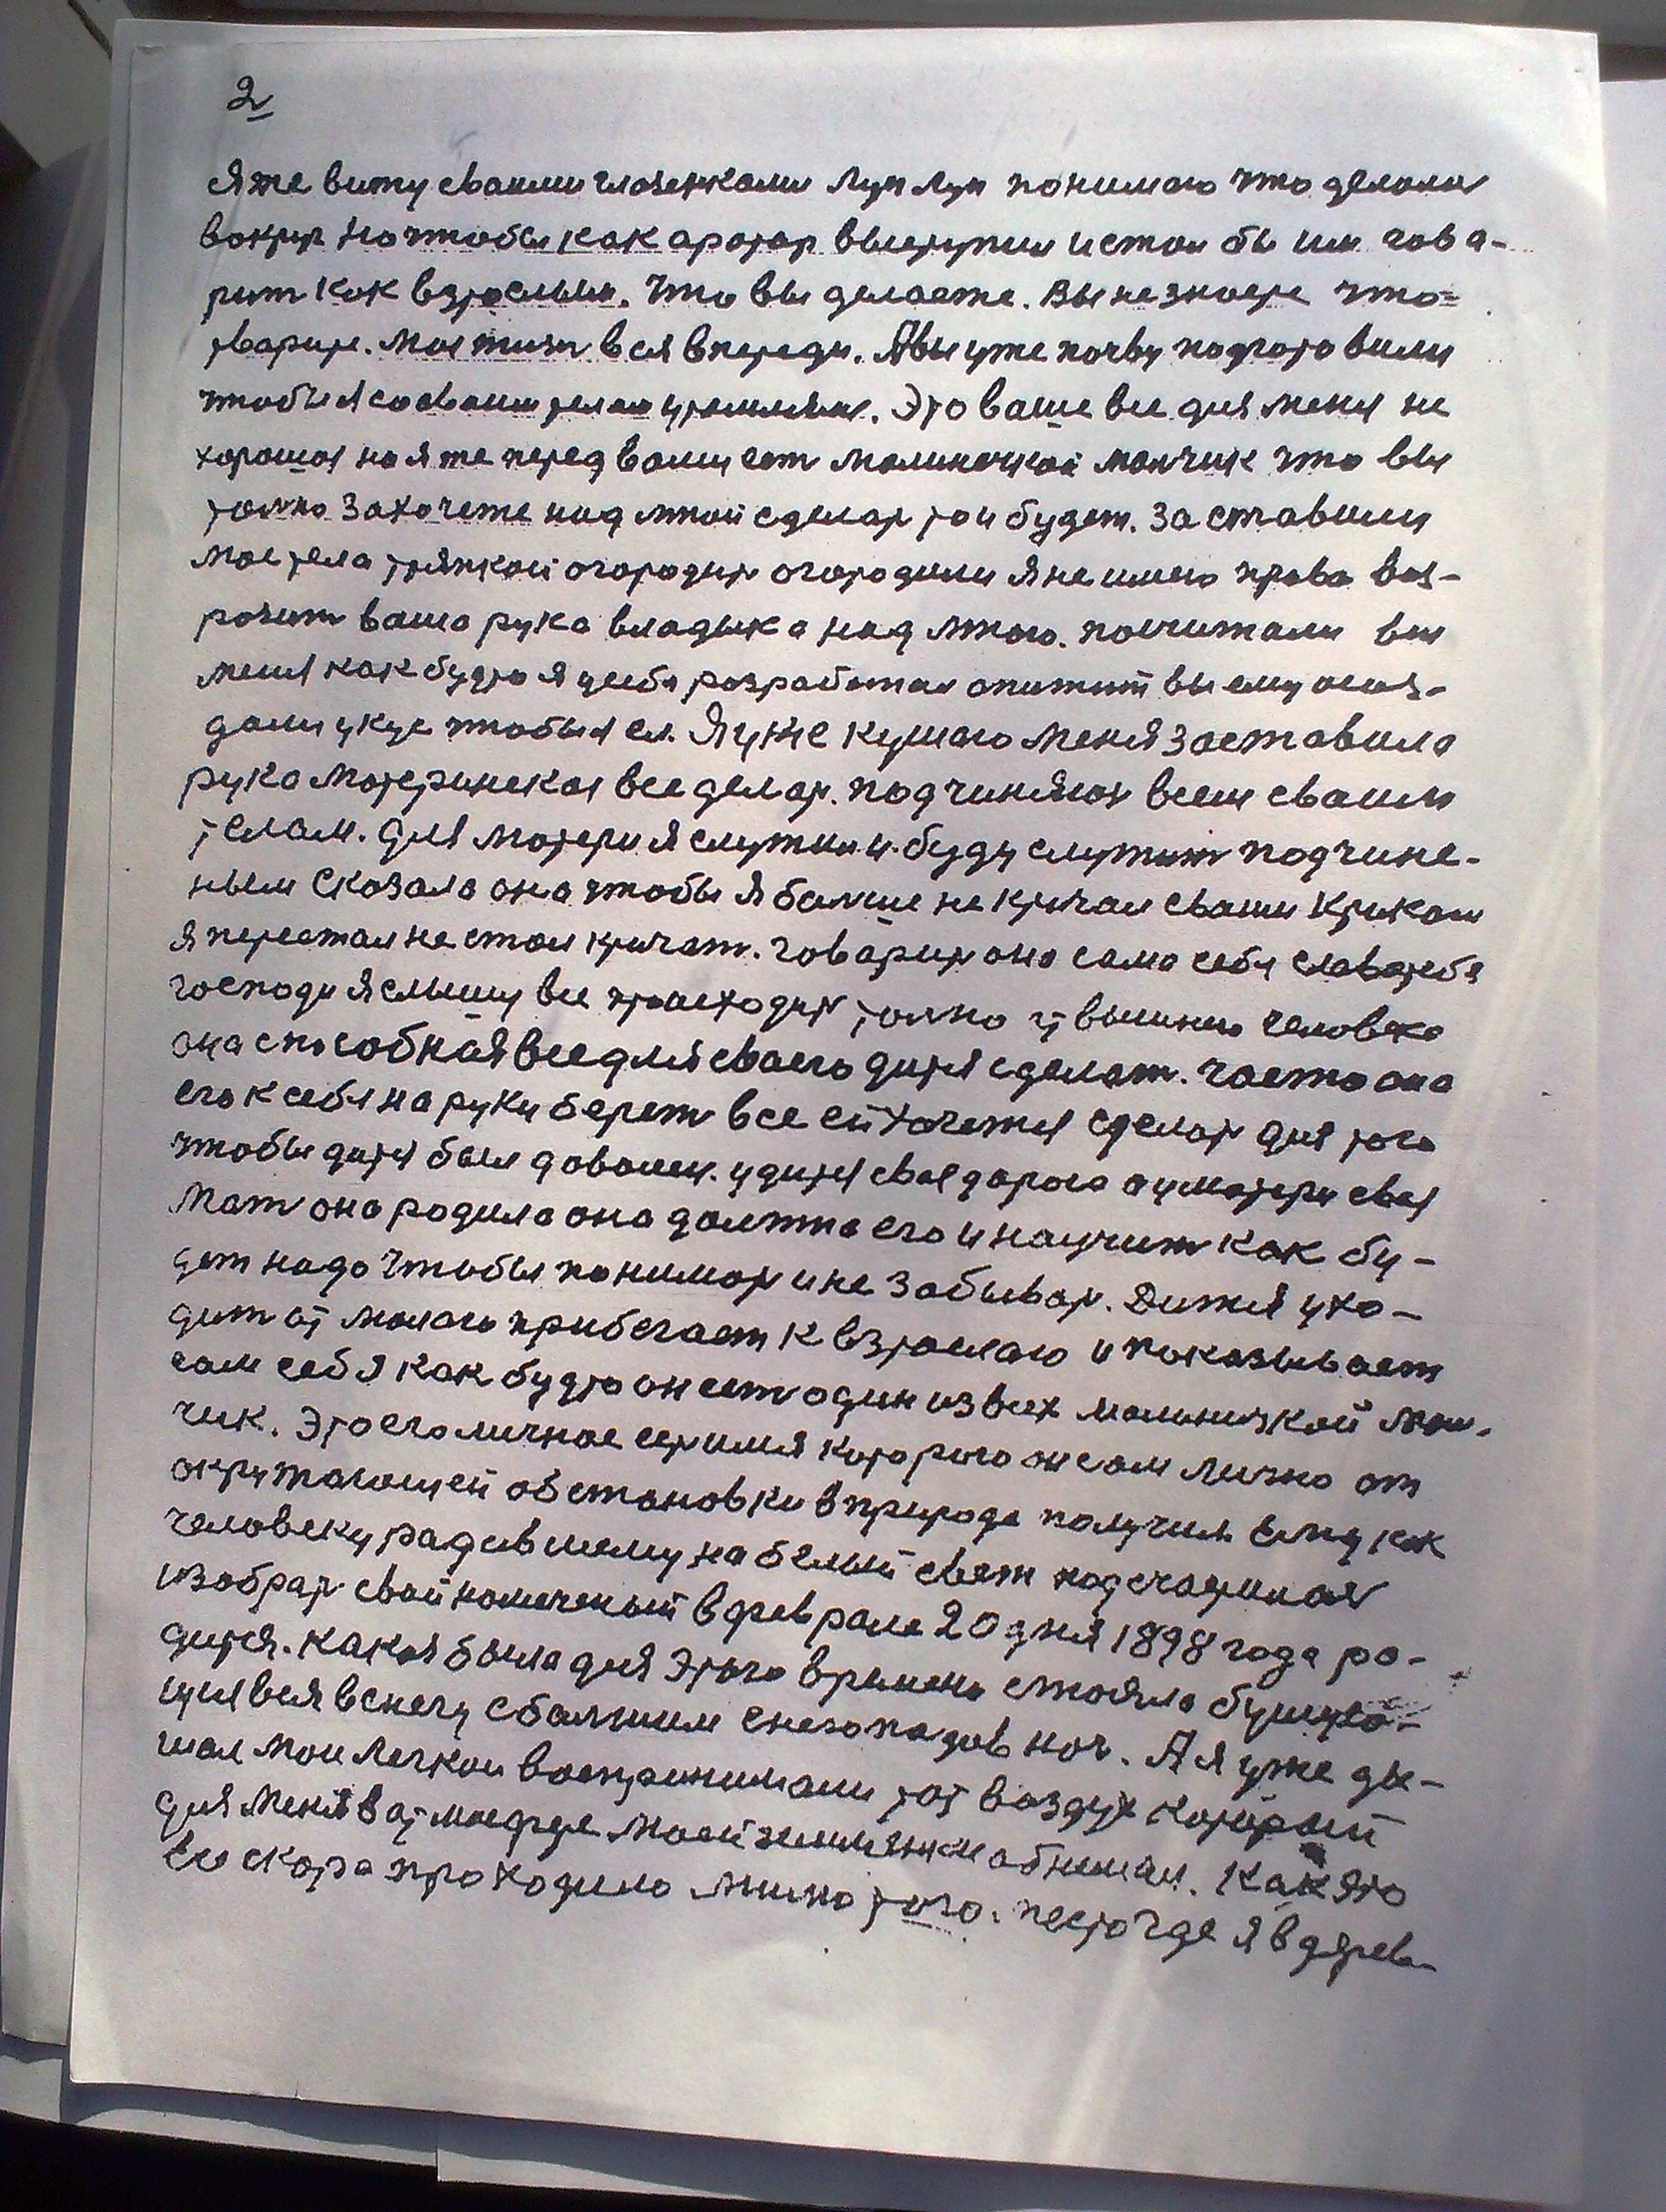 2
Я же вижу сваими глазенками луп луп понимаю что делали
вокруг но чтобы как аратар выступил и стал бы им гова-
рит как взрослым. Что вы делаете. Вы не знаете что
тварите. Моя жизн вся впереди. А вы уже почву подготовили
чтобы я со своим телам Это ваше все для меня не
хорошая но я же перед вами ест малиночкой малчик что вы
толко захочете над мной сделат то и будет. Заставили
мое тела тряпкой огородит огородили я не имею права воз-
розит ваша рука владыка над мною. посчитали вы
меня как будто я у себя разработал апитит вы ему
дали укус чтобы я ел. Я уже кушаю меня заставила
рука материнская все делат. подчиняюс всем сваим
телам. Для матери я служил и буду служит подчине-
ным Сказала она чтобы я болше не кричал сваим криком
я перестал не стал кричат. Говарит она сама себя слава тебя
господи я слышу все происходит толко от вышнию человека
она способная все для сваего дитя сделат. Часто она
его к себя на руки берет все ей хочется сделат для того
чтобы дитя был доволен. у дитя свая дорога а у матери свая
Мат она родила она должна его и научит как бу-
дет надо чтобы понимат и не забыват. Дитя ухо-
дит от малого прибегает к взрослаю и показывает
сам себя как будто он ест один из всех малиничкой мал-
чик. Это его личное ест имя которого он сам лично от
окружающей обстановки в природе получил. Ему как
человеку радившему на белый свет
изобрат свой намеченый в феврале 20 дня 1898 года ро-
дится. Какая была для этого времени стояла бушую-
щия вся в снегу с балшим снегопадов ноч. А я уже ды-
шал мои легкои воспринимали тот воздух который
для меня в атмосфере моей земленки обнимал. Как это
все скора проходило мимо того. место где я в дерев-